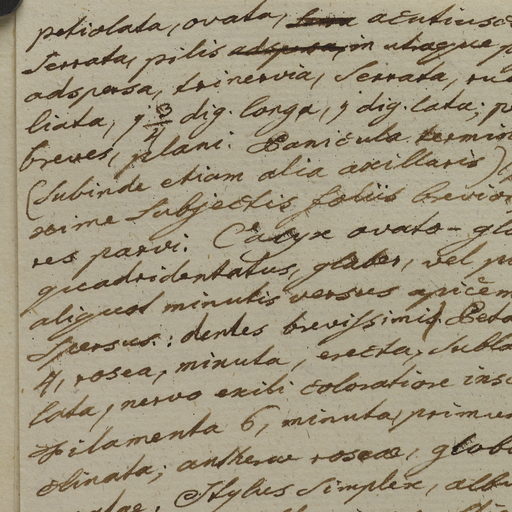 petiolata, ovata, acutiusc
Serrata, pilis adspersa, in utraque p
adspersa, trinervia, Serrata, ru
liata, 3/4 dig. longa, dig. lata; p
breves, plani. Panicula termin
(Subinde etiam alia axillaris)
xime Subjectis foliis brevior
res parvi. Calyx ovato-glo
quadridentatus, glaber, vel pi
aliquot minutis versus apicē
Spersus: dentes brevissimi. Peta
4, rosea, minuta, erecta, Subla
lata, nervo exili coloratiore ins
Filamenta 6, minuta, primu
clinata; antherae roseae, glob
Stylus Simplex, alb